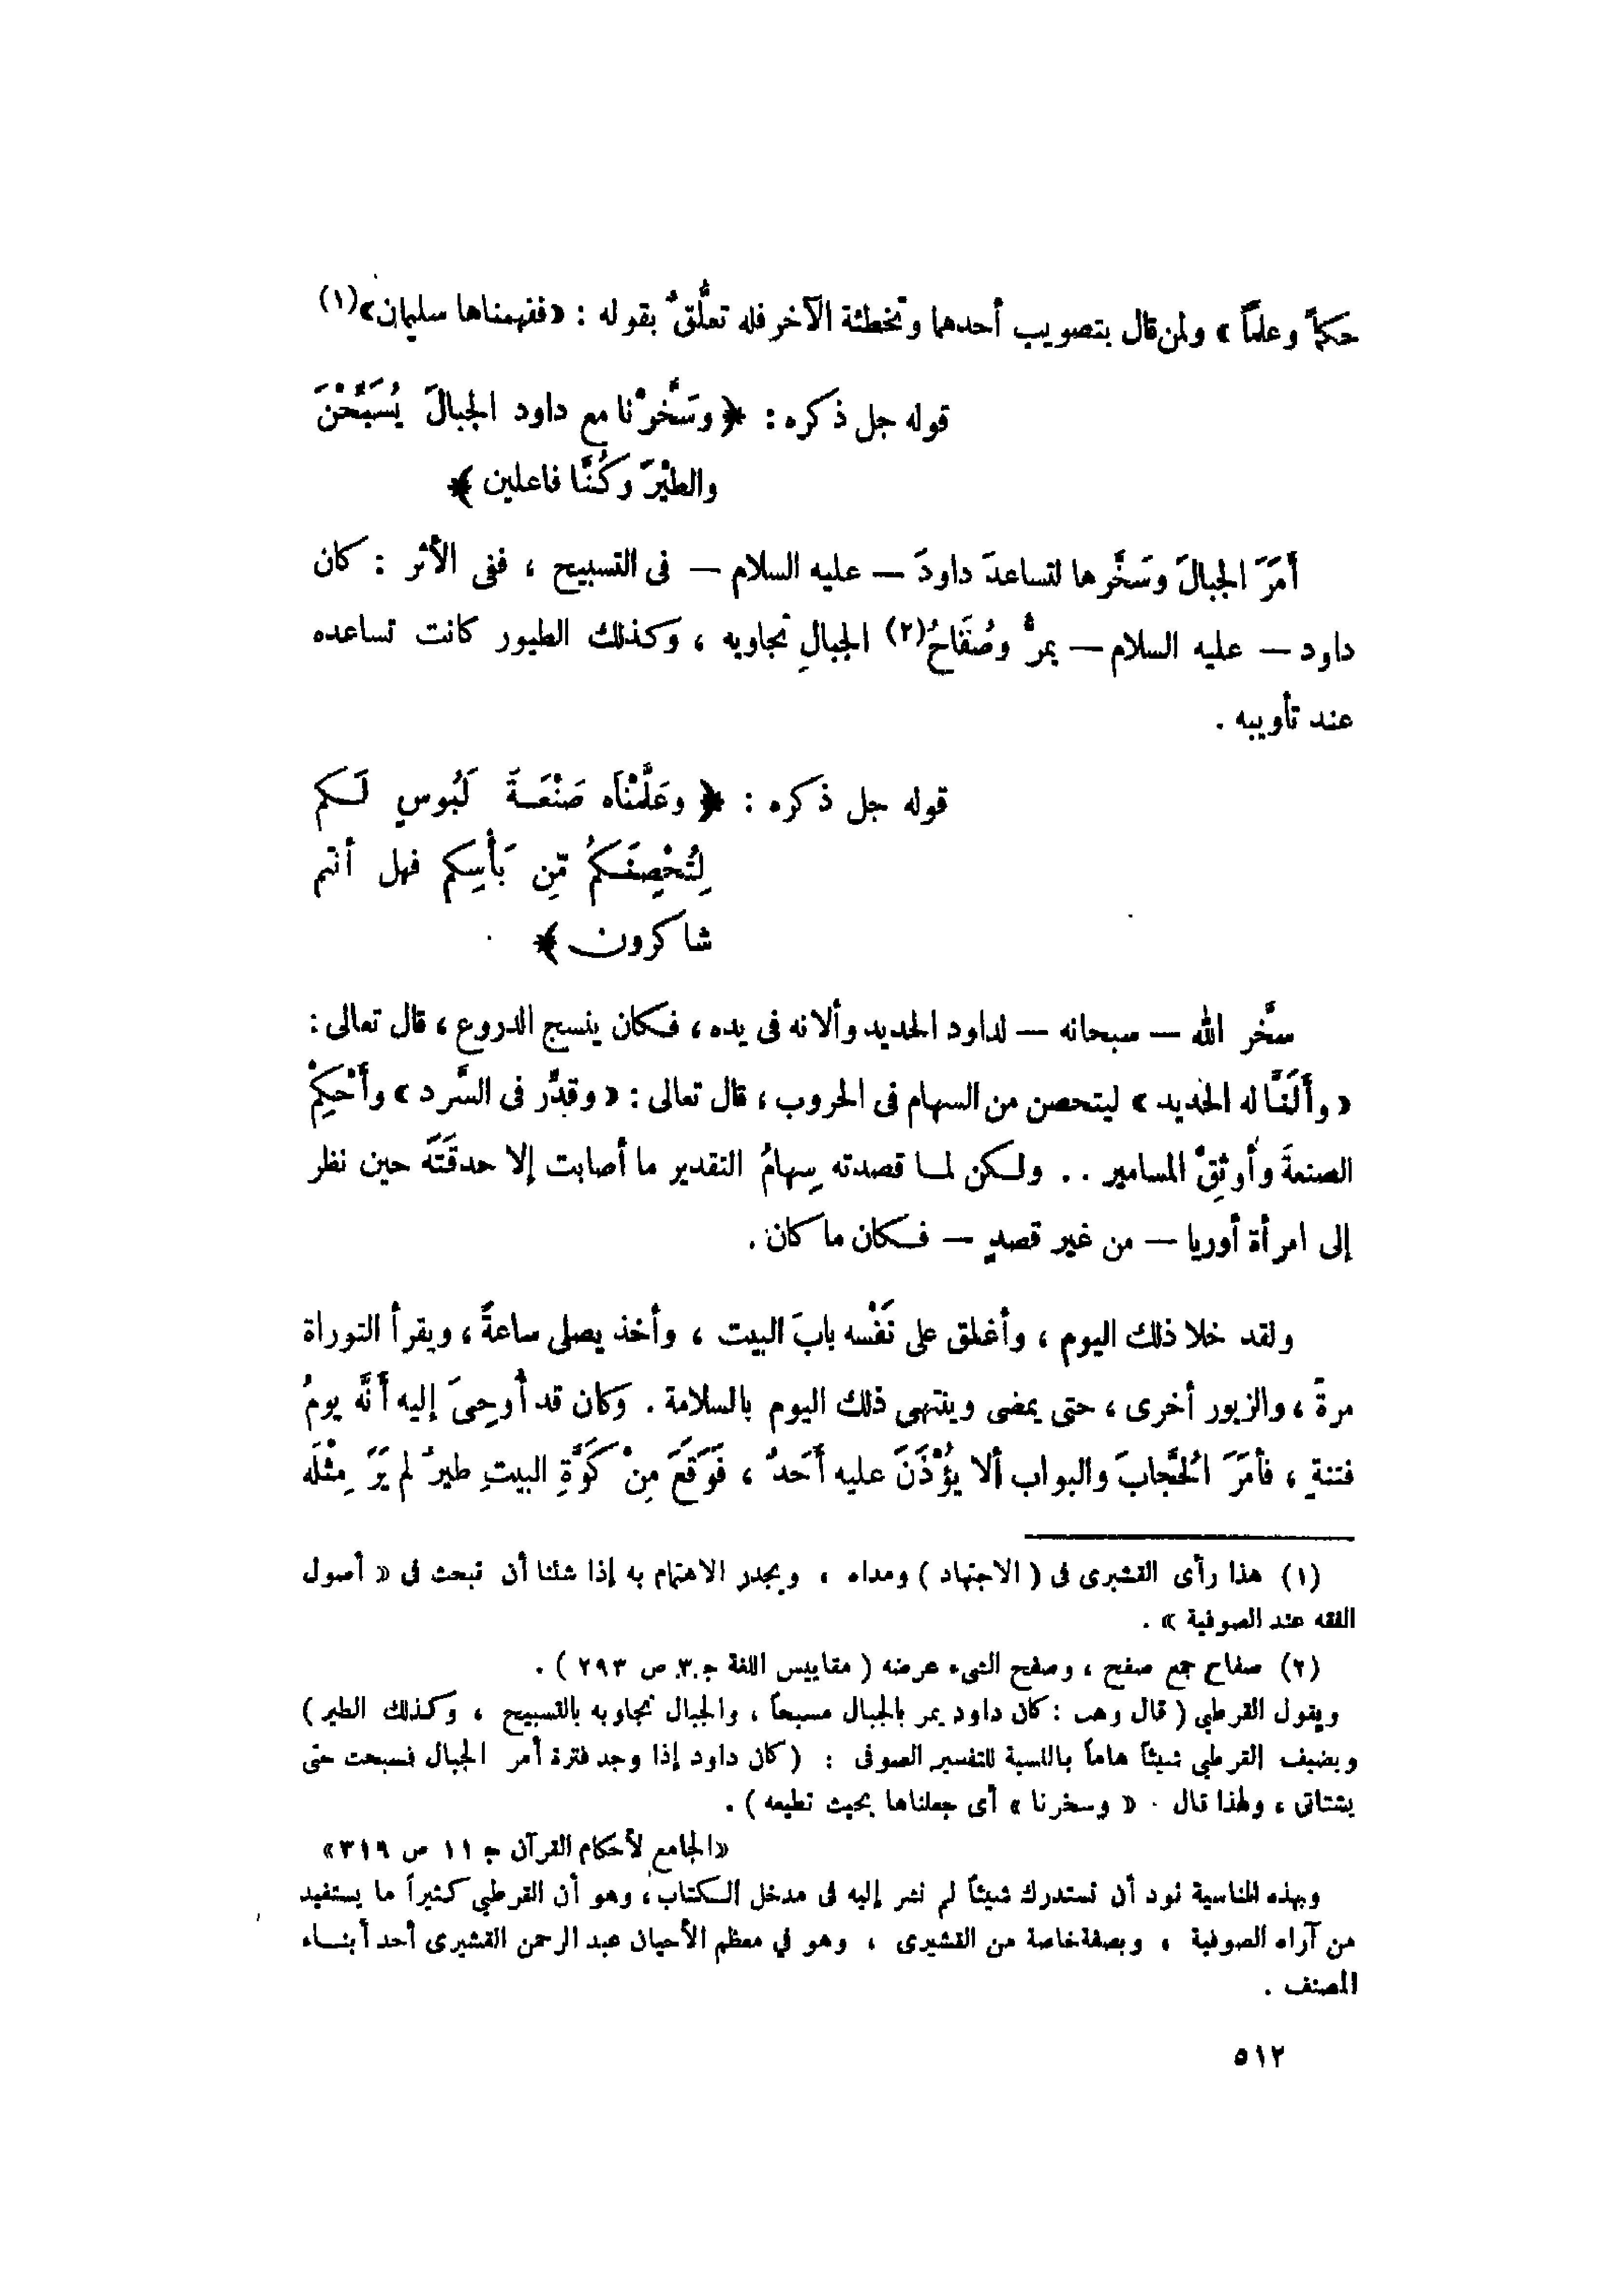 حكماً وعلماً » ولمن قال بتصويب أحدهما وتخطئة الآخر فله تعلُّقٌ بقوله : «ففهمناها سليمان»(١)
قوله جل ذكره : ﴿ وسَخَّرْنا مع داود الجبالَ يُسَبِّحْنَ
والطيْرَ وكُنَّا فاعلين ﴾
أَمَرَ الجبالَ وسَخَّرها لتساعدَ داودَ — عليه السلام — فى التسبيح ، ففى الأثر : كان
داود — عليه السلام — يمرُّ وصُفَاحُ(٢) الجبالِ تجاوبه ، وكذلك الطيور كانت تساعده
عند تأويبه .
قوله جل ذكره : ﴿ وعَلَّمْنَاه صَنْعَـةَ لَبُوسٍ لَـكم
لِتُحْصِنَـكُم مِّن بَأْسِكم فهل أنتم
شاكرون ﴾
سخَّر الله — سبحانه — لداود الحديد وألانه فى يده ، فـكان ينسج الدروع ، قال تعالى :
« وأَلَنَّا له الحديد » ليتحصن من السهام فى الحروب ، قال تعالى : « وقدِّر فى السَّرد » وأَحْكِمْ
الصنعةَ وأوثِقْ المسامير .. ولـكن لمـا قصدته سِهامُ التقدير ما أصابت إلا حدقَتَه حين نظر
إلى امرأة أوريا — من غير قصدٍ — فـكان ما كان .
ولقد خلا ذلك اليوم ، وأغلق على نَفْسه بابَ البيت ، وأخذ يصلى ساعةً ، ويقرأ التوراة
مرةً ، والزبور أخرى ، حتى يمضى وينتهى ذلك اليوم بالسلامة . وكان قد أُوحِىَ إليه أَنَّه يومُ
فتنةٍ ، فأمَرَ الحُجَّابَ والبواب ألا يُؤْذَنَ عليه أَحَدٌ ، فَوَقَعَ مِنْ كَوَّةِ البيتِ طيرٌ لم يَرَ مِثْلَه
(١) هذا رأى القشيرى فى ( الاجتهاد ) ومداه ، ويجدر الاهتمام به إذا شئنا أن نبحث فى « أصول
الفقه عند الصوفية » .
(٢) صفاح جمع صفح ، وصفح الشىء عرضه ( مقاييس اللغة ج ٣ ص ٢٩٣ ) .
ويقول القرطبي ( قال وهب : كان داود يمر بالجبال مسبحاً ، والجبال تجاوبه بالتسبيح ، وكذلك الطير )
ويضيف القرطبي شيئاً هاماً بالنسبة للتفسير الصوفى : ( كان داود إذا وجد فترة أمر الجبال فسبحت حتى
يشتاق ، ولهذا قال . « وسخرنا » أى جعلناها بحيث تطيعه ) .
«الجامع لأحكام القرآن ج ١١ ص ٣١٩»
وبهذه المناسبة نود أن نستدرك شيئاً لم نشر إليه فى مدخل الـكتاب ، وهو أن القرطبي كثيراً ما يستفيد
من آراء الصوفية ، وبصفة خاصة من القشيرى ، وهو في معظم الأحيان عبد الرحمن القشيرى أحد أبنـاء
المصنف .
٥١٢